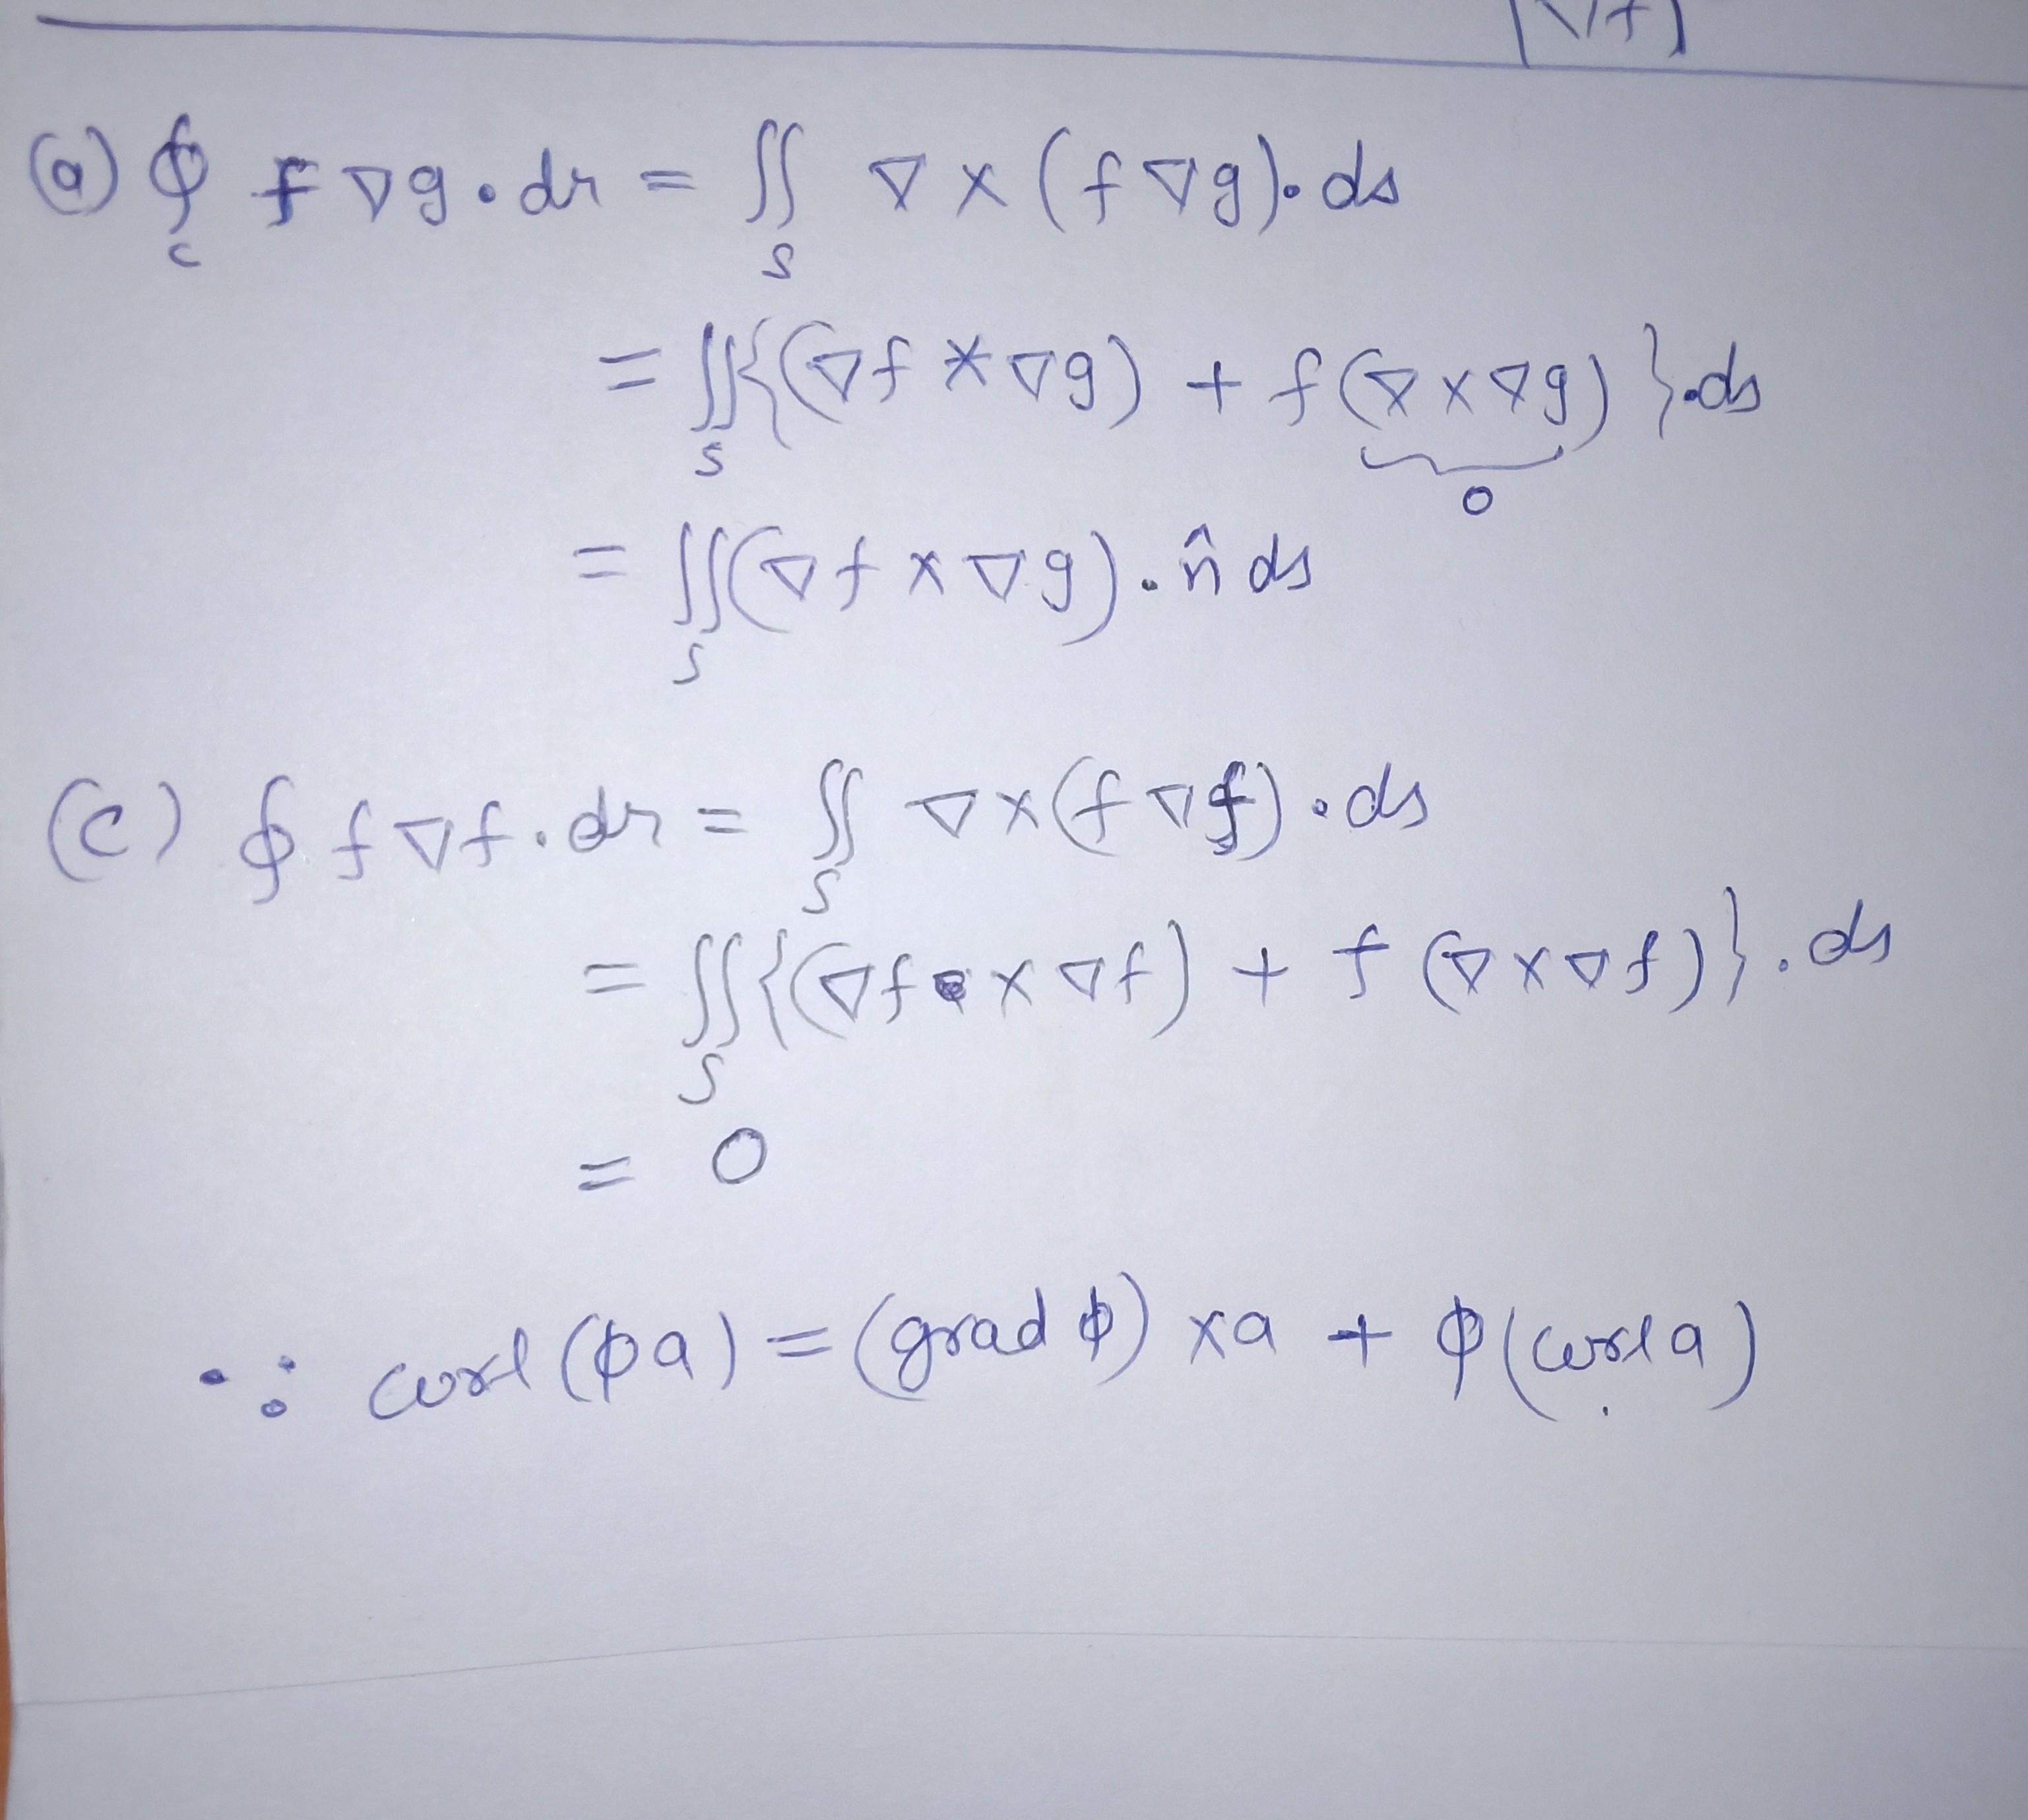 |∇f|
(a) ∮_C f ∇g · dr = ∬_S ∇ × (f ∇g) · ds
= ∬_S {(∇f × ∇g) + f (∇ × ∇g)} · ds
0
= ∬_S (∇f × ∇g) · n̂ ds
(c) ∮ f ∇f · dr = ∬_S ∇ × (f ∇f) · ds
= ∬_S {(∇f × ∇f) + f (∇ × ∇f)} · ds
= 0
∵ curl (ϕa) = (grad ϕ) × a + ϕ (curl a)